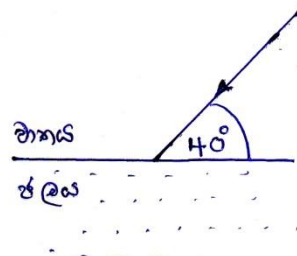 වාතය
40°
ජලය